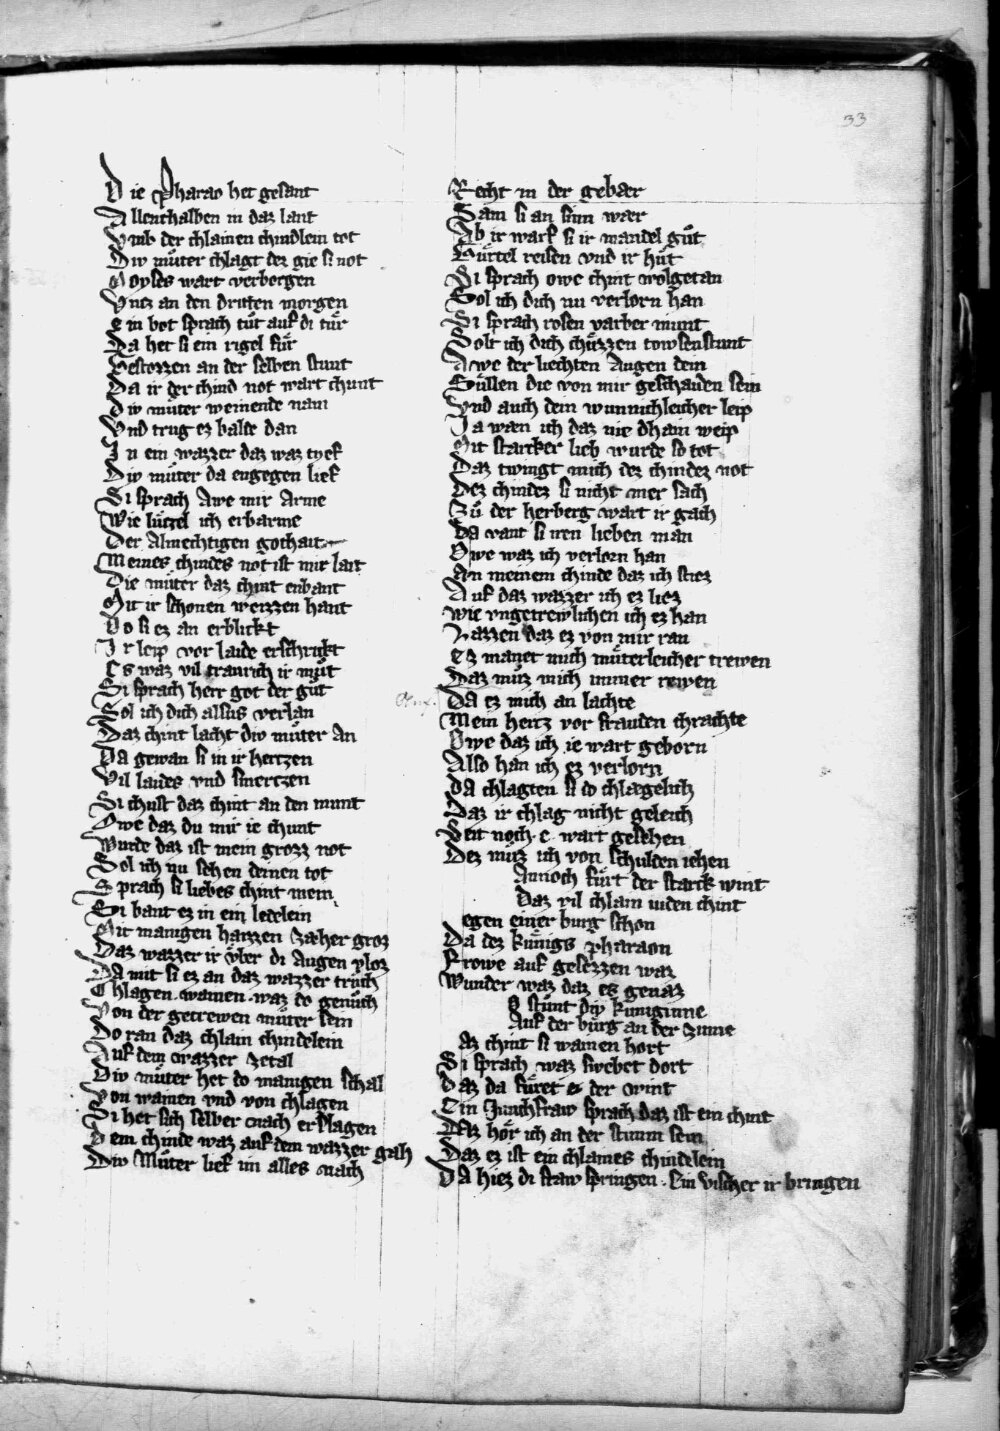 33
Die Pharao het gesant
Allenthalben in daz lant
Vmb der chlainen chindlein tot
Div můter chlagt dez gie si not
Moyses wart verborgen
Vntz an den dritten morgen
Ein bot sprach tůt auf di tůr
Da het si ein rigel fůr
Gestozzen an der selben stunt
Da ir der chind not wart chunt
Div můter weinende nam
Vnd trug ez balde dan
In ein wazzer daz waz tyef
Div můter da engegen lief
Si sprach Awe mir Arme
Wie lůtzel ich erbarme
Der Almechtigen gothait
Meines chindes not ist mir lait
Die můter daz chint enbant
Mit ir schonen weizzen hant
Do si ez an erblickt
Ir leip vor laide erschrikt
Es waz vil traurich ir můt
Si sprach herr got der gůt
Sol ich dich alsus verlan
Daz chint lacht div můter An
Da gewan si in ir hertzen
Vil laides vnd smertzen
Si chust daz chint an den munt
Owe daz du mir ie chunt
Wurde daz ist mein grozz not
Sol ich nu sehen deinen tot
Sprach si liebes chint mein
Si bant ez in ein ledelein
Mit manigen haizzen zæher groz
Daz wazzer ir vber di Augen vloz
Da mit si ez an daz wazzer truch
Chlagen wainen waz do genůch
Von der getrewen můter sein
Do ran daz chlain chindelein
Auf dem wazzer zetal
Div můter het do manigen schal
Von wainen vnd von chlagen
Si het sich selber nach erslagen
Dem chinde waz auf dem wazzer gah
Div Můter lief im alles nach
Recht in der gebær
Sam si an sinn wær
Ab ir warf si ir mandel gůt
Gůrtel reisen vnd ir hůt
Si sprach owe chint wolgetan
Sol ich dich nu verlorn han
Si sprach rosen varber munt
Solt ich dich chůzzen towsenstunt
Awe der liechten Augen dein
Sůllen die von mir geschaiden sein
Vnd auch dein wunnichleicher leip
Ja wæn ich daz nie dhain weip
Mit starcker lieb wurde so tot
Daz twingt mich dez chindez not
Dez chindez si nicht mer sach
Zů der herberg wart ir gach
Da vant si iren lieben man
Owe waz ich verlorn han
An meinem chinde daz ich stiez
Auf daz wazzer ich ez liez
Wie vngetrewlichen ich ez han
Lazzen daz ez von mir ran
Ez manet mich můterleicher trewen
Daz můz mich immer rewen
Da ez mich an lachte
Mein hertz vor frauden chrachte
Owe daz ich ie wart geborn
Also han ich ez verlorn
Da chlagten si so chlægelich
Daz ir chlag nicht geleich
Seit noch e wart gesehen
Dez můz ich von schulden iehen
Annoch fůrt der starck wint
Daz vil chlain iuden chint
egen einer burg schon
Da dez kůnigs pharaon
Frowe auf gesezzen waz
Wunder waz daz es genaz
O stůnt div kuniginne
Auf der burg an der zinne
Az chint si wainen hort
Si sprach waz swebet dort
Daz da fůret der wint
Ein Junchfraw sprach daz ist ein chint
Daz hőr ich an der stimm sein
Daz ez ist ein chlaines chindelein
Da hiez di fraw springen Ein vischer ir bringen